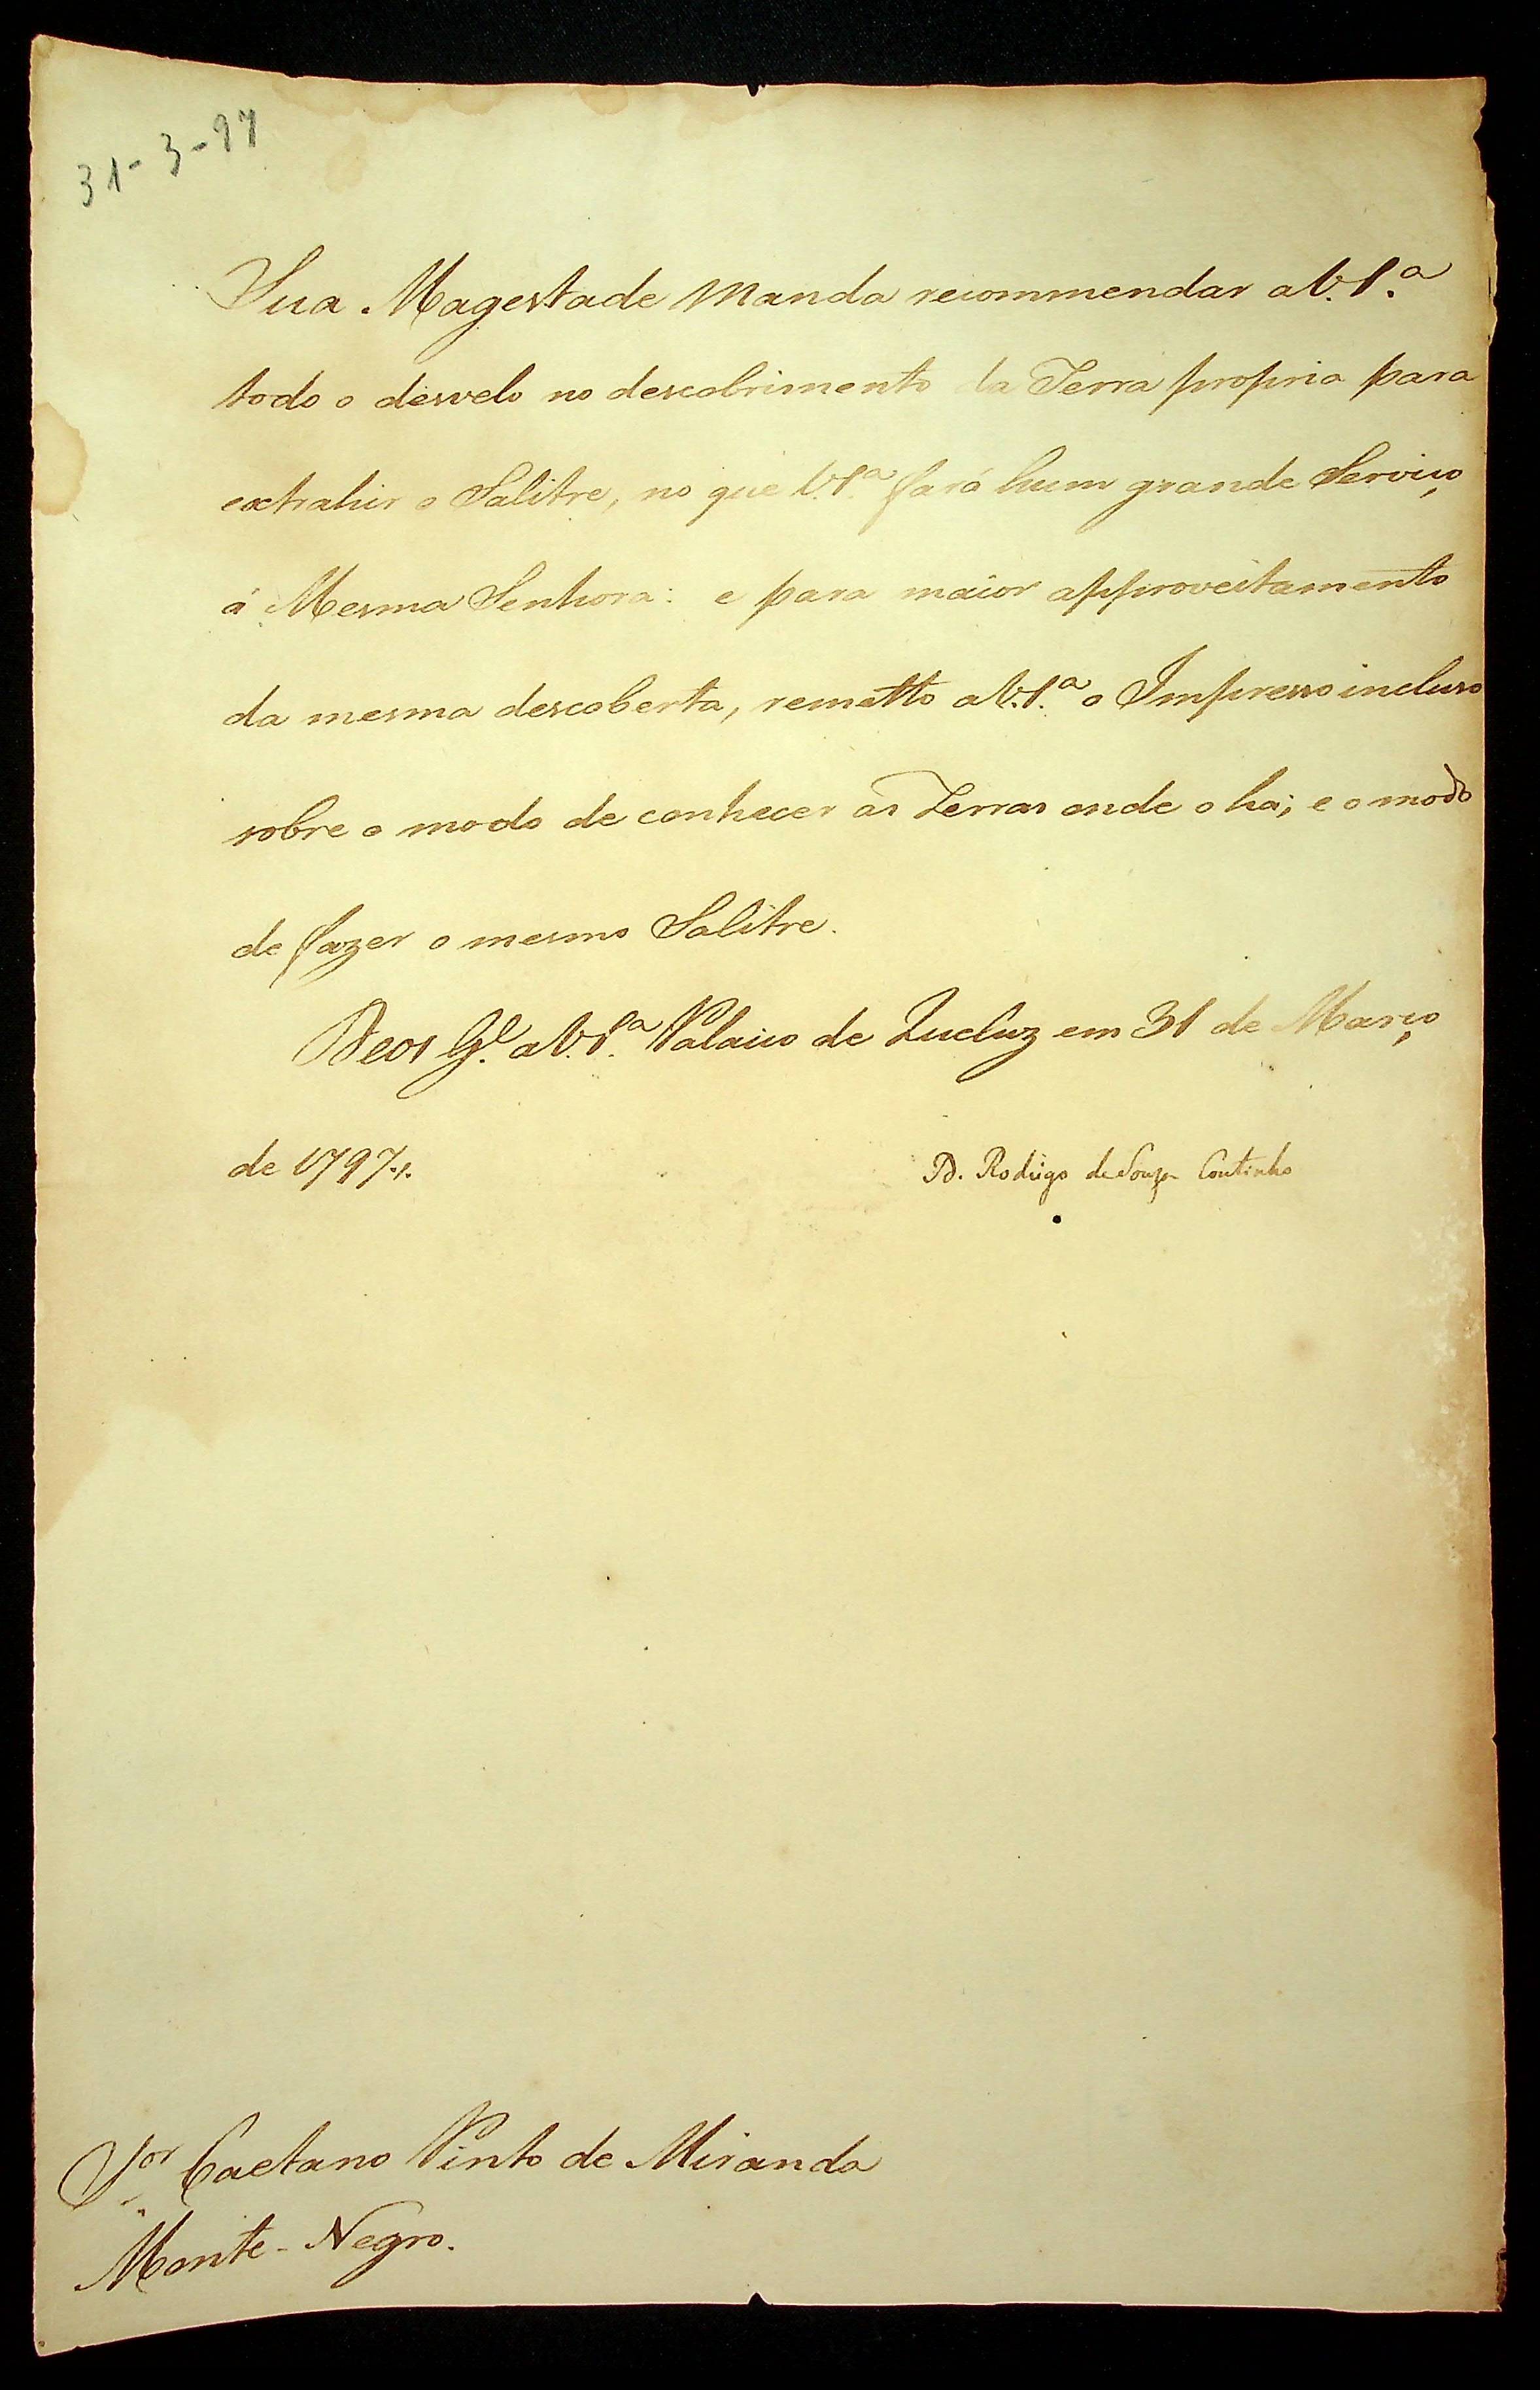 31-3-97
Sua Magestade Manda recommendar a V. S.ª
todo o desvelo no descobrimento da Terra propria para
extrahir o Salitre, no que V. S.ª fará hum grande Serviço
á Mesma Senhora: e para maior approveitamento
da mesma descoberta, remetto a V. S.ª o Impresso incluso
sobre o modo de conhecer as Terras onde o há; e o modo
de fazer o mesmo Salitre.
Deos G.e a V. S.ª Palacio de Queluz em 31 de Março
de 1797.
D. Rodrigo de Souza Coutinho
S.or Caetano Pinto de Miranda
Monte-Negro.